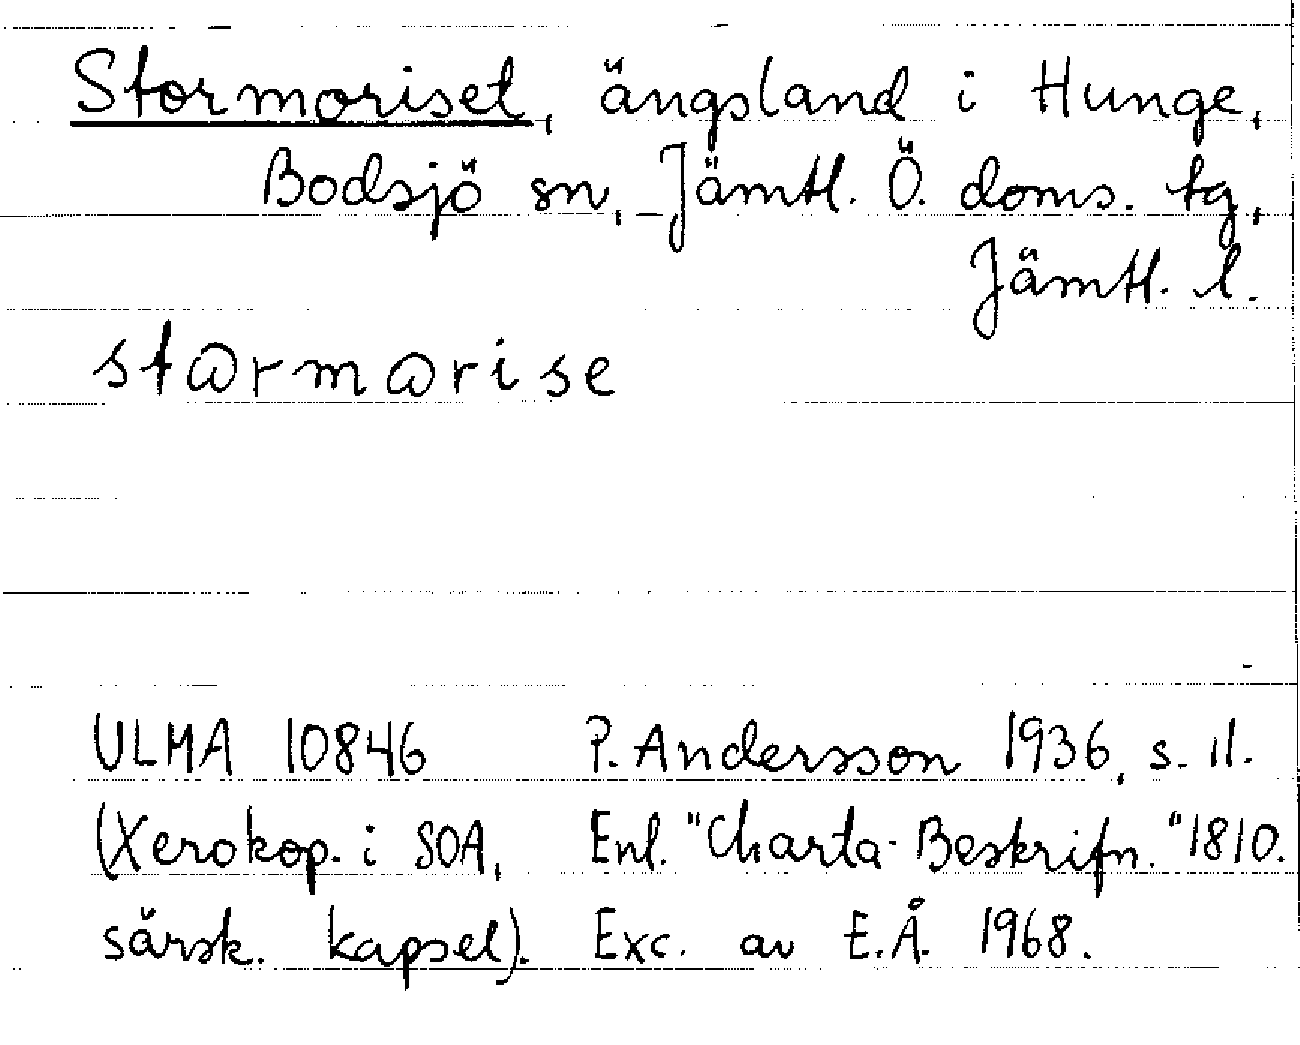 Stormoriset, ängsland i Hunge,
Bodsjö sn, Jämtl. Ö. doms. tg,
Jämtl. l.
stɷrmɷrise
ULMA 10846 P. Andersson 1936, s. 11.
(Xerokop. i SOA, Enl. "Charta-Beskrifn." 1810.
särsk. kapsel). Exc. av E.Å. 1968.